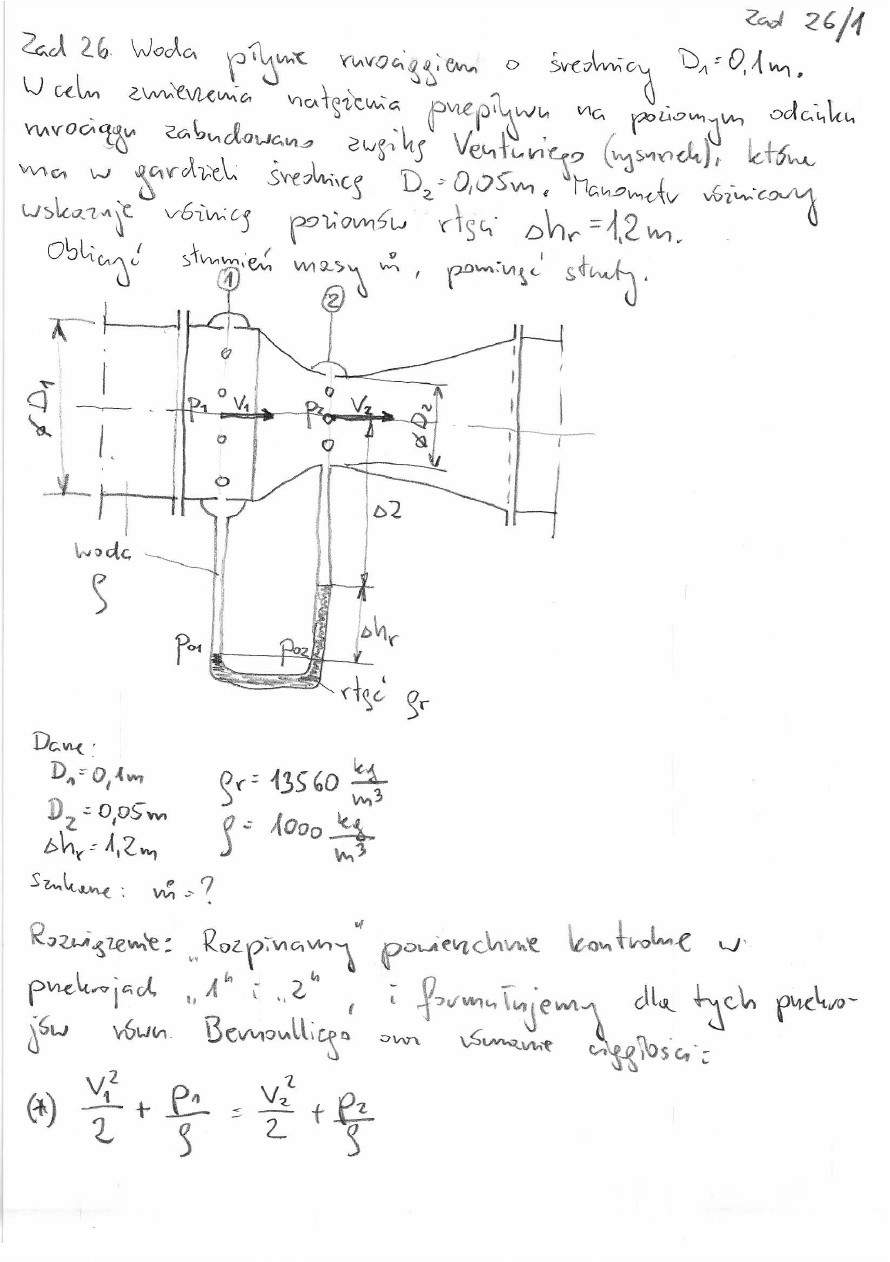 Zad 26/1
Zad 26. Woda płynie rurociągiem o średnicy D₁=0,1m.
W celu zmierzenia natężenia przepływu na poziomym odcinku
rurociągu zabudowano zwężkę Venturiego (rysunek), która
ma w gardzieli średnicę D₂=0,05m. Manometr różnicowy
wskazuje różnicę poziomów rtęci Δhr=1,2m.
Obliczyć strumień masy ṁ, pominąć straty.
① ②
ø D₁ p₁ V₁ p₂ V₂ ø D₂
Δz
woda
ρ
Δhr
p₀₁ p₀₂
rtęć ρr
Dane:
D₁=0,1m ρr = 13560 kg/m³
D₂=0,05m ρ = 1000 kg/m³
Δhr=1,2m
Szukane: ṁ=?
Rozwiązanie: „Rozpinamy" powierzchnie kontrolne w
przekrojach „1" i „2", i formułujemy dla tych przekro-
jów równ. Bernoulliego oraz równanie ciągłości:
(*) V₁²/2 + p₁/ρ = V₂²/2 + p₂/ρ